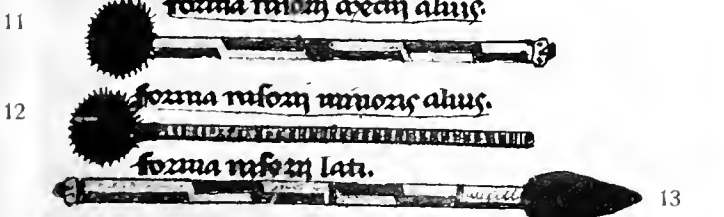 11
forma rasorij
alius.
12
forma rasorij minoris alius.
forma rasorij lati.
13